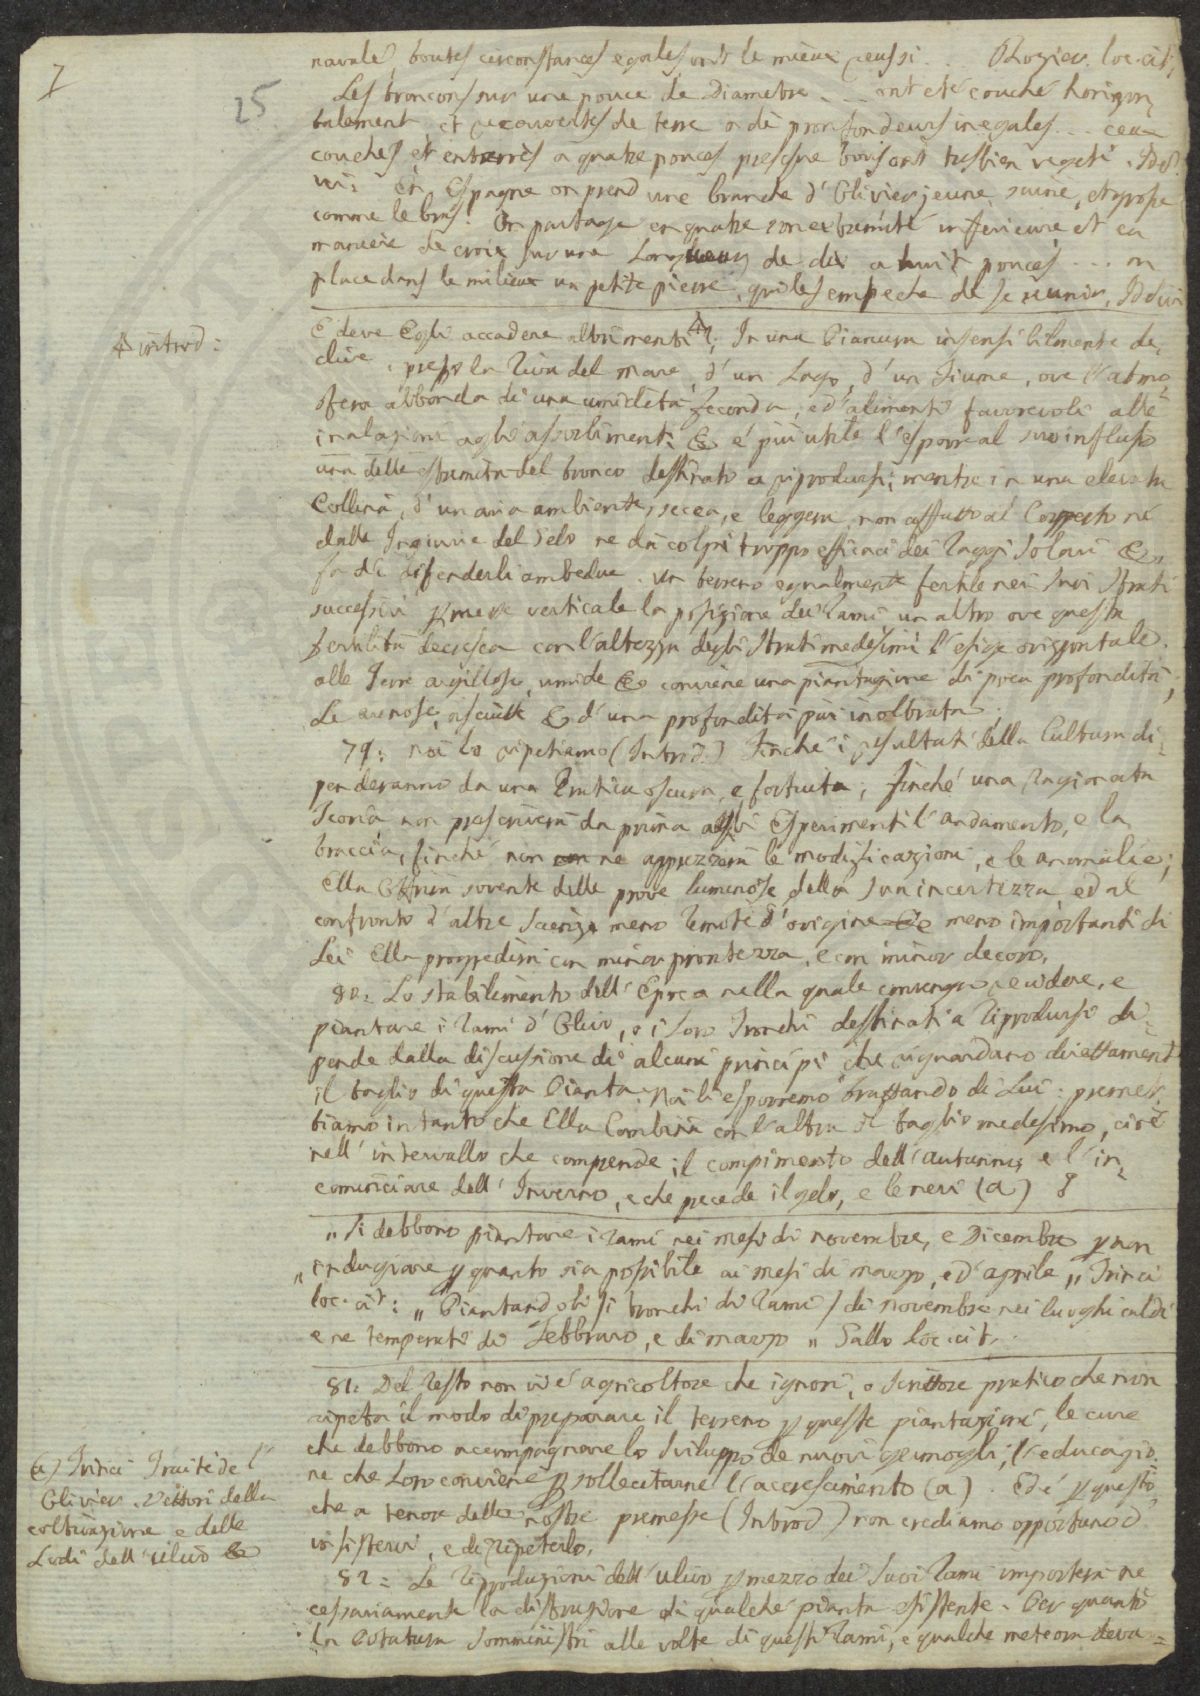 7
25
navale, toutes circonstances egales ont le mieux reussi .. Rozier loc. cit.
Les troncons sur une pouce de Diametre ... ont eté couché horizon,
talement et recouvertes de terre a de pronfondeurs inegales ... ceux
couches et enterrès a quatre pouces presque tous ont tres bien vegeté. Id.
ivi: En Espagne on prend une branche d'Olivier jeune, saine, et grosse
comme le bras. On partage en quatre son extremité inferieure et en
maniere de croix sur une Longueur de dix a huit pouces ... on
place dans le milieux un petite pierre, qui les empeche de se reunir. Id. ivi
introd:
E deve Egli accadere altrimenti; In una Pianura insensibilmente de,
clive, presso la Riva del mare, d'un Lago, d'un Fiume, ove l'atmo,
sfera abbonda di una umidità feconda, ed alimenti favorevoli alle
inalazioni agli assorbimenti & è più utile l'esporre al suo influsso
una delle estremità del tronco destinato a riprodursi; mentre in una elevata
Collina, d'un aria ambiente, secca, e leggera, non affatto al Coperto né
dalle Ingiurie del Gelo ne dai colpi troppo efficaci dei raggi Solari &,
fa di difenderli ambedue. Un terreno egualmente fertile nei suoi Strati
successivi permette verticale la posizione dei Rami, un altro ove questa
fertilità decresca con l'altezza degli Strati medesimi l'esige orizzontale.
alle Terre argillose, umide & conviene una piantagione di poca profondità;
Le arenose, asciutte & d'una profondità più inoltrata.
79: noi lo ripetiamo (Introd.) Finché i resultati della Cultura di,
penderanno da una Pratica oscura, e fortuita; finché una ragionata
Teoria non prescriverà da prima agli Esperimenti l'andamento, e la
traccia, finché non ne apprezzerà le modificazioni, e le anomalie;
Ella Offrirà sovente delle prove luminose della sua incertezza ed al
confronto d'altre Scienze meno remote d'origine e meno importanti di
Lei Ella progredirà con minor prontezza, e con minor decoro.
80: Lo stabilimento dell'Epoca nella quale convenga recidere, e
piantare i rami d'Olivo, o i loro Tronchi destinati a riprodursi di,
pende dalla discussione di alcuni principi che riguardano direttamente
il taglio di questa Pianta. Noi li esporremo trattando di Lui: premet,
tiamo intanto che Ella Combina con l'altra il taglio medesimo, cioè
nell'intervallo che comprende il compimento dell'autunno, e l'in,
cominciare dell'Inverno, e che precede il gelo, e le nevi (a)
„ Si debbono piantare i rami nei mesi di novembre, e Dicembre per non
„ indugiare per quanto sia possibile ai mesi di marzo, ed aprile „ Trinci
loc. cit: „ Piantandoli si tronchi di rami / di novembre nei luoghi caldi
e ne temperati di Febbraro, e di marzo „ Gallo loc. cit.
81: Del resto non vi è agricoltore che ignori, o Scrittore pratico che non
ripeta il modo di preparare il terreno per queste piantagioni, le cure
che debbono accompagnare lo Sviluppo de nuovi germogli; l'educazio,
ne che Loro conviene per sollecitarne l'accrescimento (a). Ed è per questo,
che a tenore delle nostre premesse (Introd) non crediamo opportuno d'
insistervi, e di ripeterlo.
(a) Trinci Traité de l'
Olivier. Vettori della
coltivazione e delle
Lodi dell'ulivo &
82: Le riproduzioni dell'ulivo per mezzo dei suoi rami importerà ne
cessariamente la distruzione di qualche pianta esistente. Per quanto
la Potatura somministri alle volte di questi rami, e qualche meteora deva=